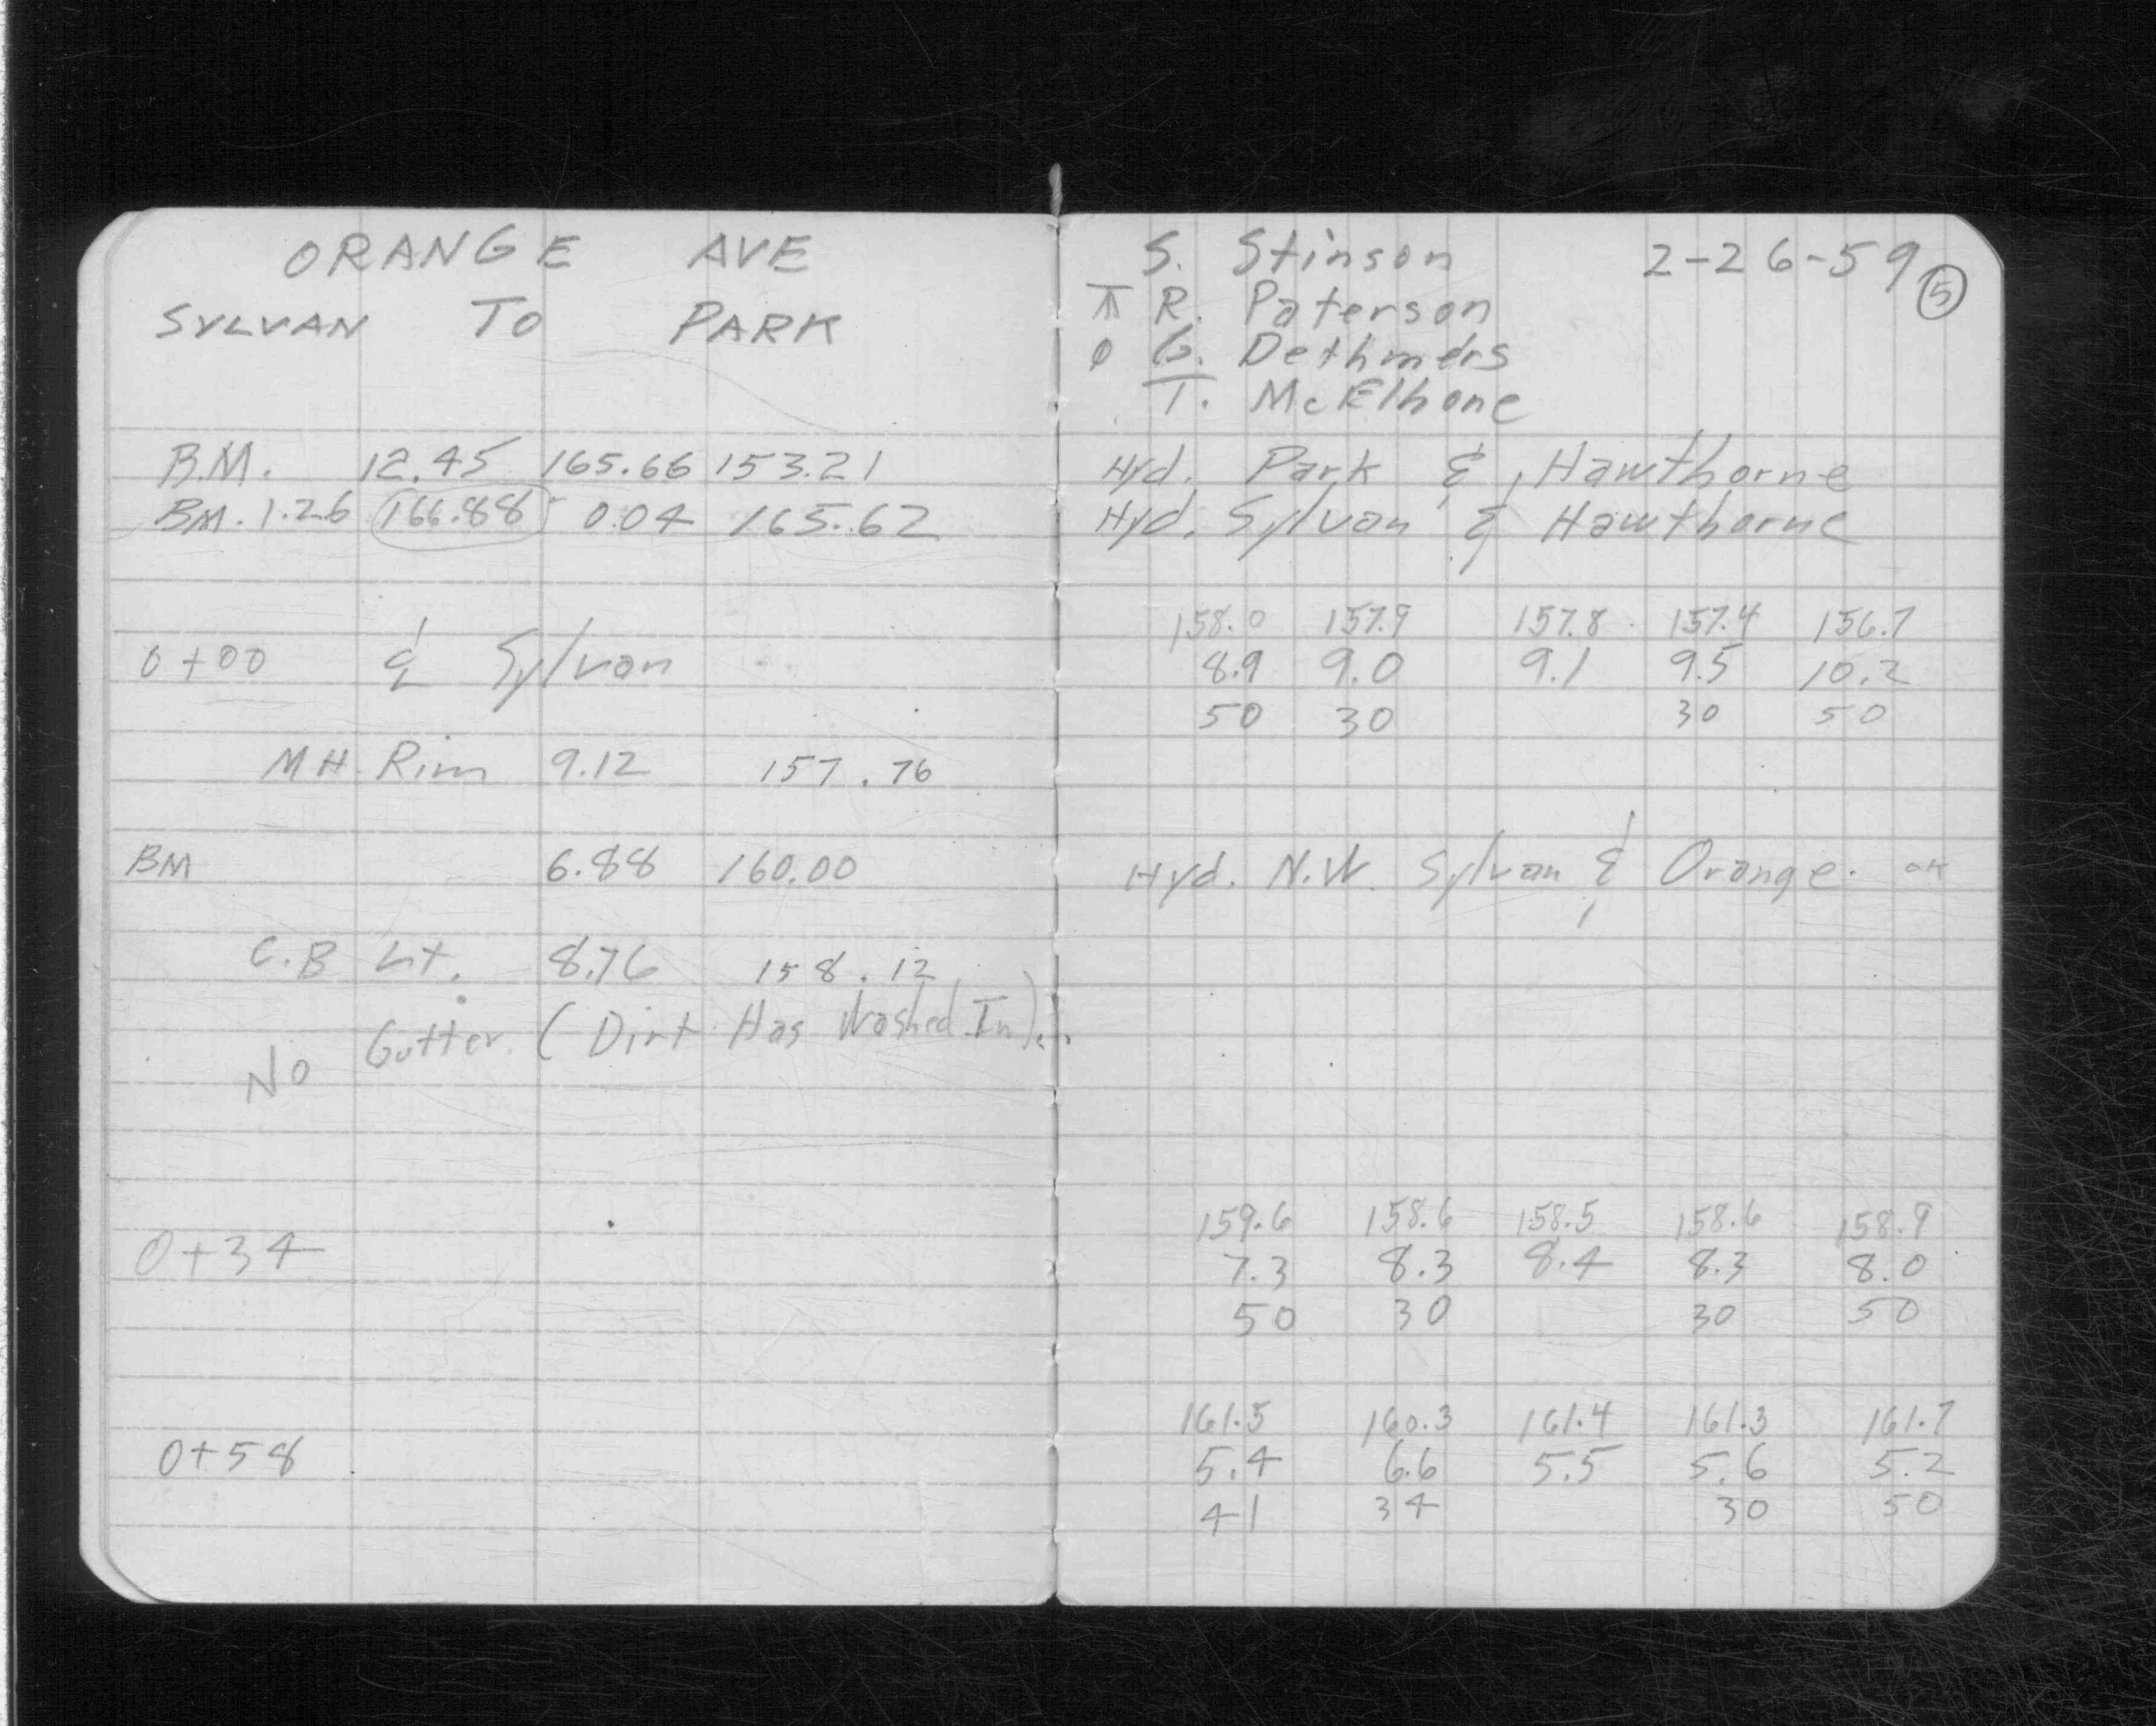 ORANGE AVE
SYLVAN TO PARK
B.M. 12.45 165.66 153.21
BM. 1.26 166.88 0.04 165.62
0+00 ℄ Sylvan
MH Rim 9.12 157.76
BM 6.88 160.00
C.B Lt. 8.76 158.12
No Gutter. (Dirt Has Washed In).
0+34
0+58
S. Stinson 2-26-59 5
⊼ R. Paterson
ϕ G. Dethmers
T. McElhone
Hyd. Park & Hawthorne
Hyd. Sylvan & Hawthorne
158.0 157.9 157.8 157.4 156.7
8.9 9.0 9.1 9.5 10.2
50 30 30 50
Hyd. N.W. Sylvan & Orange. OK
159.6 158.6 158.5 158.6 158.9
7.3 8.3 8.4 8.3 8.0
50 30 30 50
161.5 160.3 161.4 161.3 161.7
5.4 6.6 5.5 5.6 5.2
41 34 30 50